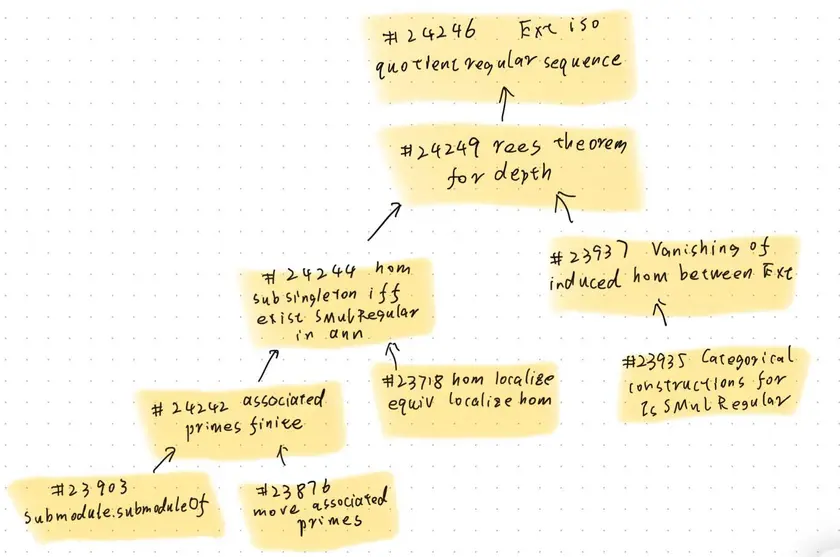 #24246 Ext iso
quotient regular sequence
#24249 rees theorem
for depth
#24244 hom
subsingleton iff
exist SMulRegular
in ann
#23937 Vanishing of
induced hom between Ext
#24242 associated
primes finite
#23718 hom localize
equiv localize hom
#23935 Categorical
constructions for
IsSMulRegular
#23903
Submodule.submoduleOf
#23876
move associated
primes